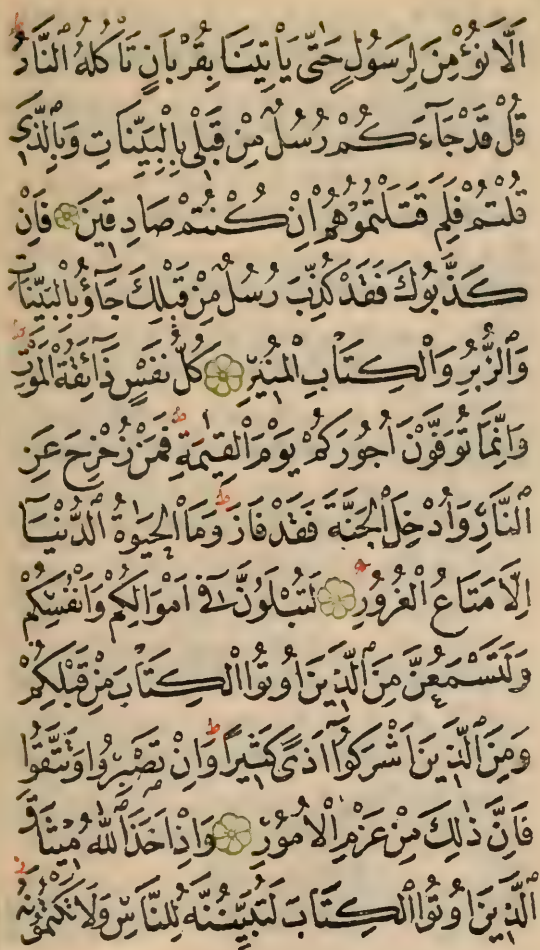 اَلَّا نُؤْمِنَ لِرَسُولٍ حَتّٰى يَأْتِيَنَا بِقُرْبَانٍ تَأْكُلُهُ النَّارُ
قُلْ قَدْ جَآءَكُمْ رُسُلٌ مِنْ قَبْلِى بِالْبَيِّنَاتِ وَبِالَّذِى
قُلْتُمْ فَلِمَ قَتَلْتُمُوهُمْ اِنْ كُنْتُمْ صَادِقِينَ فَاِنْ
كَذَّبُوكَ فَقَدْ كُذِّبَ رُسُلٌ مِنْ قَبْلِكَ جَآؤُ بِالْبَيِّنَاتِ
وَالزُّبُرِ وَالْكِتَابِ الْمُنِيرِ كُلُّ نَفْسٍ ذَآئِقَةُ الْمَوْتِ
وَاِنَّمَا تُوَفَّوْنَ اُجُورَكُمْ يَوْمَ الْقِيٰمَةِ فَمَنْ زُحْزِحَ عَنِ
النَّارِ وَاُدْخِلَ الْجَنَّةَ فَقَدْ فَازَ وَمَا الْحَيٰوةُ الدُّنْيَآ
اِلَّا مَتَاعُ الْغُرُورِ لَتُبْلَوُنَّ فِٓى اَمْوَالِكُمْ وَاَنْفُسِكُمْ
وَلَتَسْمَعُنَّ مِنَ الَّذِينَ اُوتُوا الْكِتَابَ مِنْ قَبْلِكُمْ
وَمِنَ الَّذِينَ اَشْرَكُوٓا اَذًى كَثِيرًا وَاِنْ تَصْبِرُوا وَتَتَّقُوا
فَاِنَّ ذٰلِكَ مِنْ عَزْمِ الْاُمُورِ وَاِذْ اَخَذَ اللّٰهُ مِيثَاقَ
الَّذِينَ اُوتُوا الْكِتَابَ لَتُبَيِّنُنَّهُ لِلنَّاسِ وَلَا تَكْتُمُونَهُ